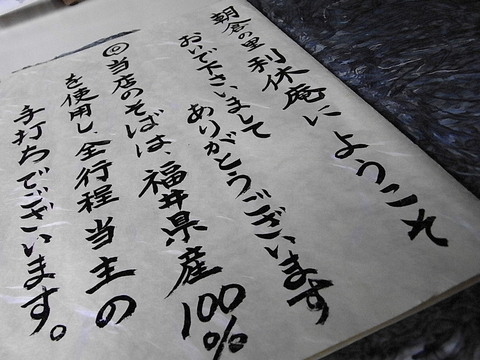 朝倉の里利休庵にようこそ
おいで下さいまして
ありがとうございます
◎当店のそばは、福井県産100%
を使用し、全行程当主の
手打ちでございます。